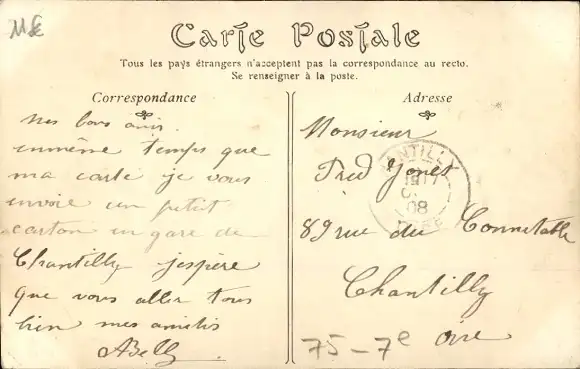 Carte Postale
Tous les pays étrangers n'acceptent pas la correspondance au recto.
Se renseigner à la poste.
Correspondance
Mes bons amis
enmême temps que
ma carte je vous
envoie un petit
carton en gare de
Chantilly jespère
que vous aller tous
bien mes amitis
Adresse
Monsieur
Fred
89 rue du Connetable
Chantilly
Oise
75-7e
CHANTILLY
08
OISE